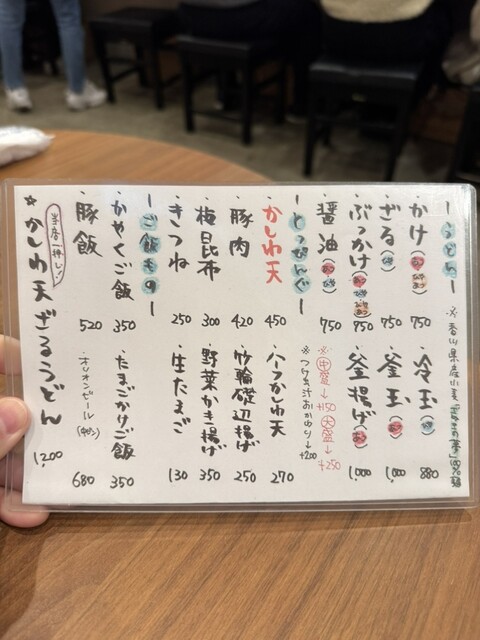 ーうどんー
※香川県産小麦「さぬきの夢」100%麺
・かけ（あつ ひや） 750
・冷玉（ひや） 880
・ざる（ひや） 750
・釜玉（あつ） 1,000
・ぶっかけ 750
・釜揚げ（あつ） 1,000
・醤油（あつ ひや） 750
※中盛→+150 大盛→+250
※つけ汁おかわり→+200
ーとっぴんぐー
・かしわ天 450
・ハーフかしわ天 270
・豚肉 420
・竹輪磯辺揚げ 250
・梅昆布 300
・野菜かき揚げ 350
・きつね 250
・生たまご 130
ーご飯ものー
・かやくご飯 350
・たまごかけご飯 350
・豚飯 520
・オリオンビール（中ビン） 680
当店一押し!
★かしわ天ざるうどん 1,200